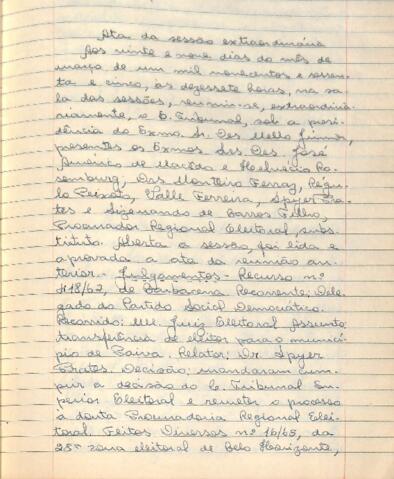 Ata da sessão extraordinária
Aos vinte e nove dias do mês de
março de um mil novecentos e sessen-
ta e cinco, às dezessete horas, na sa-
la das sessões, reuniu-se, extraordina-
riamente, o E. Tribunal, sob a presi-
dência do Exmo. Sr. Des. Mello Júnior,
presentes os Exmos. Srs. Des. José
Américo de Macêdo e Helvécio Ro-
semburg, Drs. Monteiro Ferraz, Régu-
lo Peixoto, Valle Ferreira, Spyer Pra-
tes e Sizenando de Barros Filho,
Procurador Regional Eleitoral, subs-
tituto. Aberta a sessão, foi lida e
aprovada a ata da reunião an-
terior. - Julgamentos - Recurso nº
418/62, de Barbacena. Recorrente: Dele-
gado do Partido Social Democrático.
Recorrido: MM. Juiz Eleitoral. Assunto:
transferência de eleitor para o municí-
pio de Paiva. Relator: Dr. Spyer
Prates. Decisão: mandaram cum-
prir a decisão do C. Tribunal Su-
perior Eleitoral e remeter o processo
à douta Procuradoria Regional Elei-
toral. Feitos Diversos nº 16/65, da
25ª zona eleitoral de Belo Horizonte,